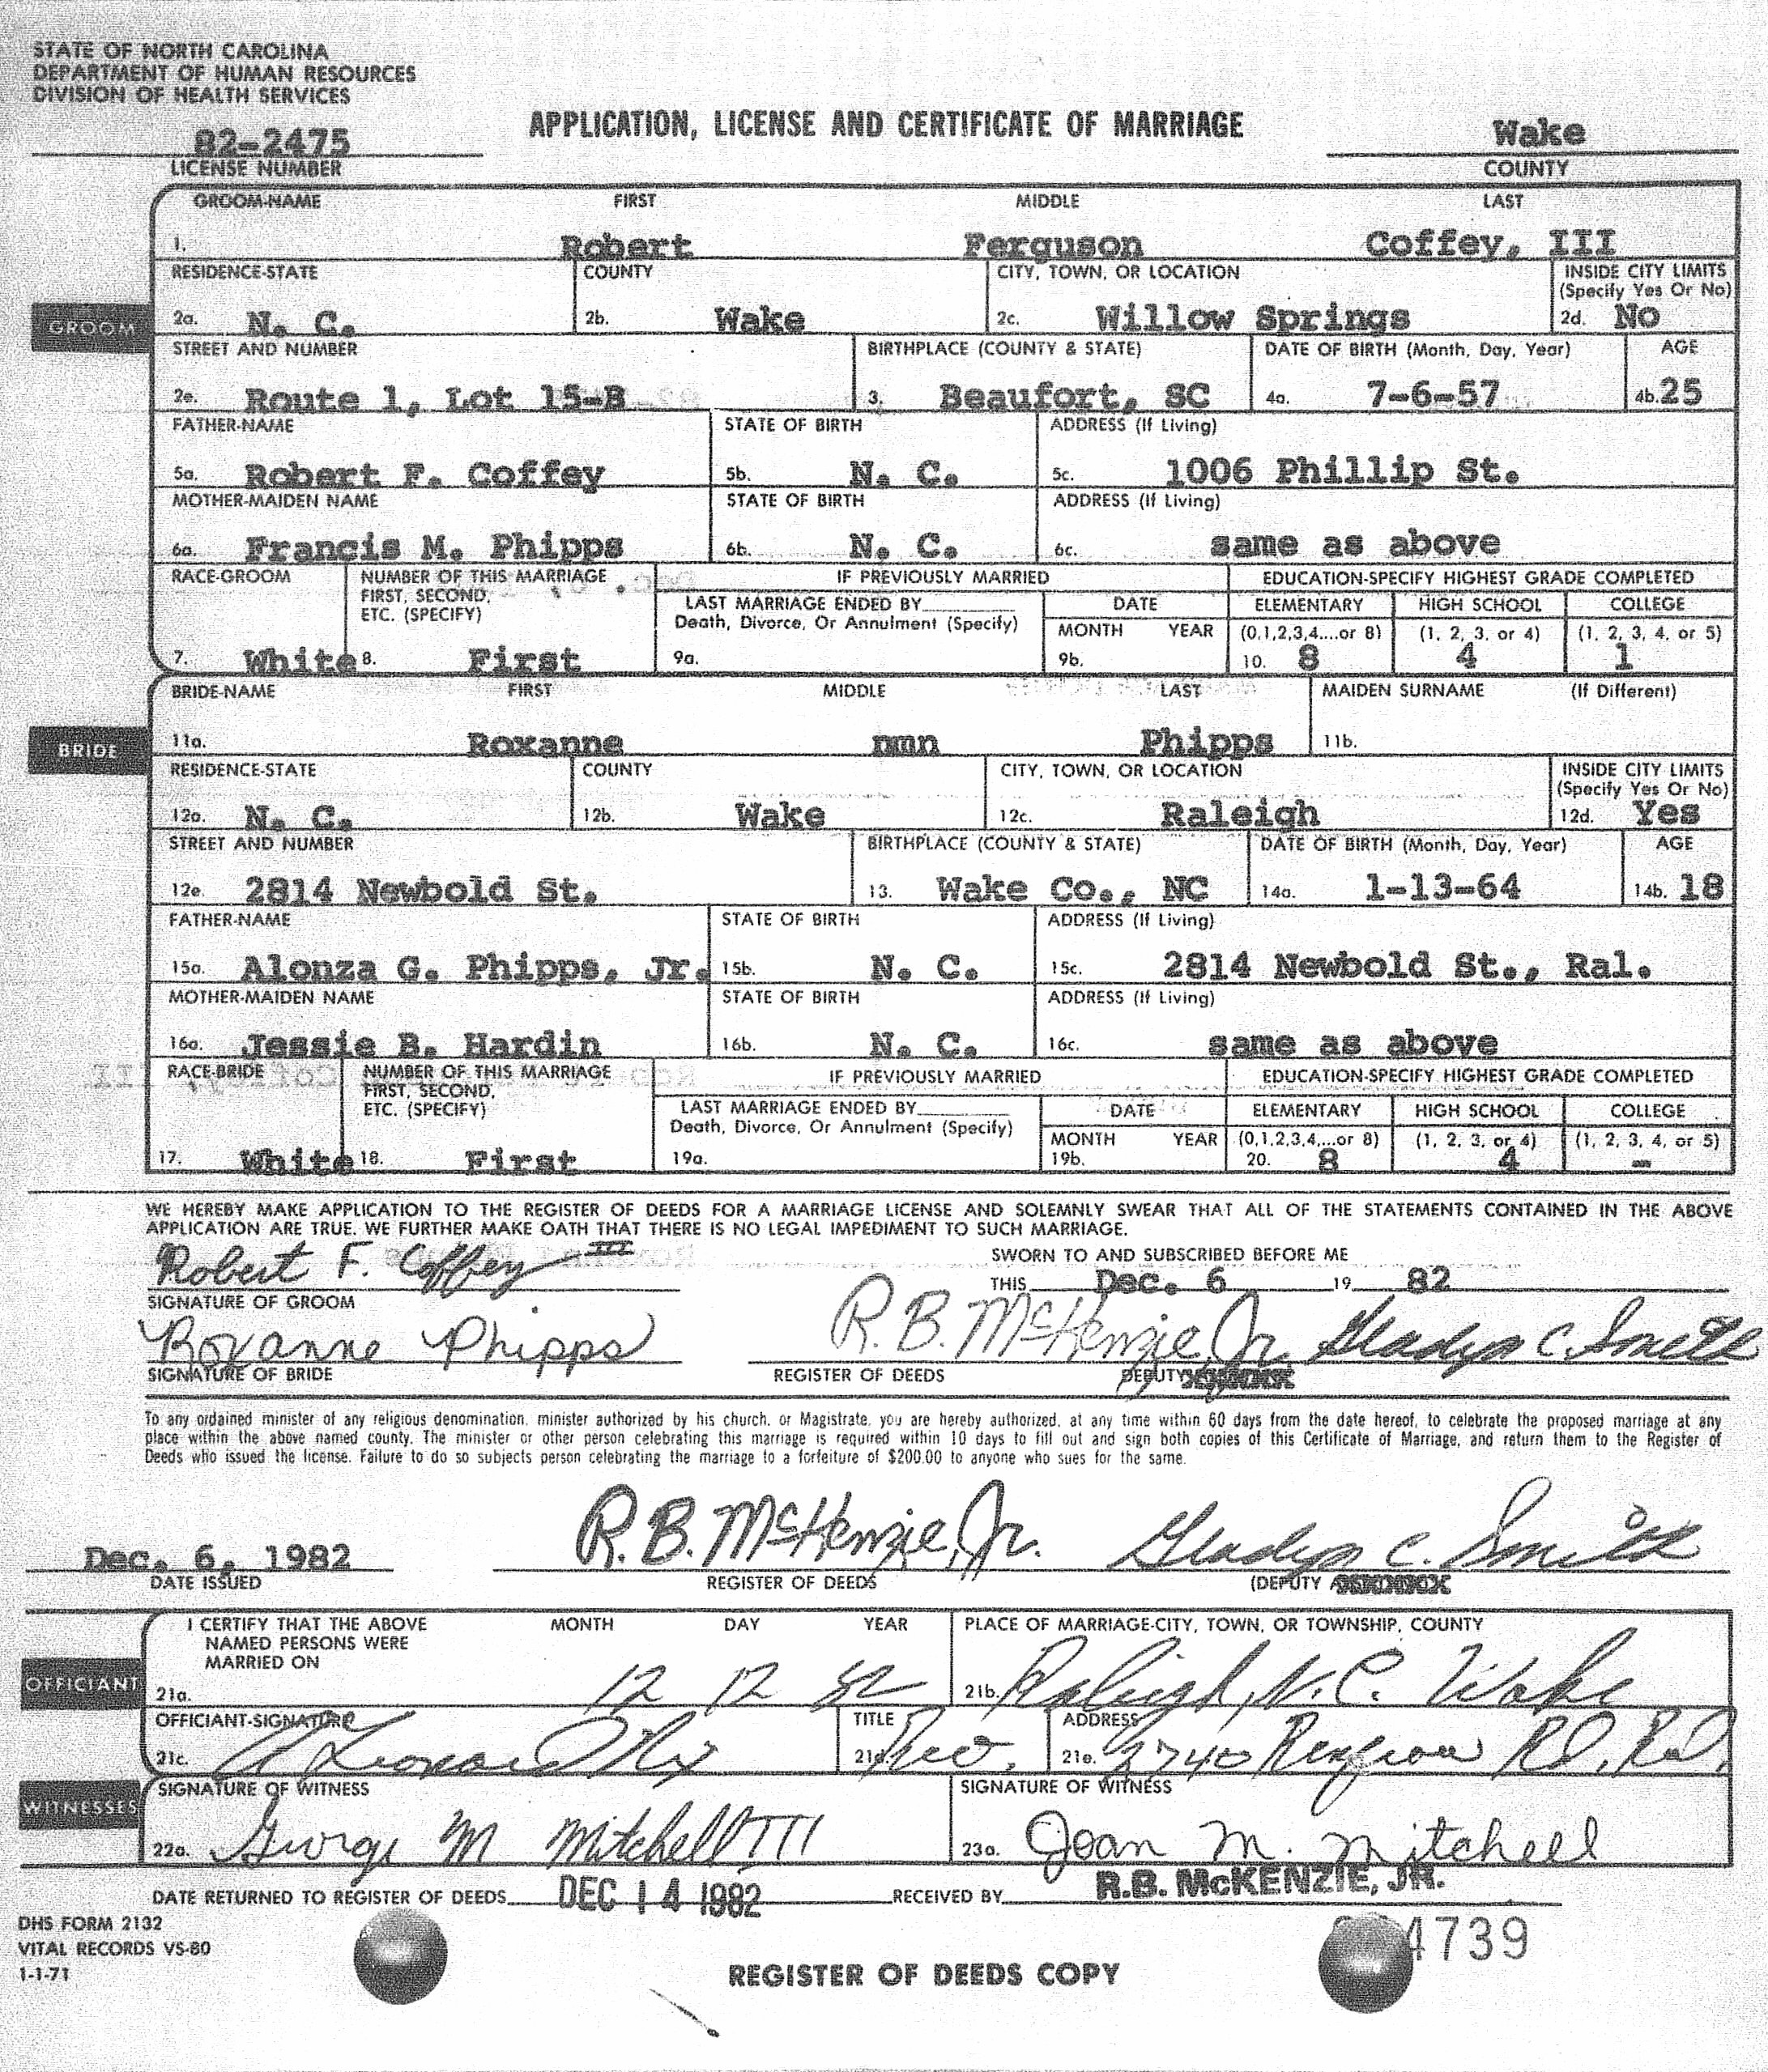 STATE OF NORTH CAROLINA
DEPARTMENT OF HUMAN RESOURCES
DIVISION OF HEALTH SERVICES
82-2475
LICENSE NUMBER
APPLICATION, LICENSE AND CERTIFICATE OF MARRIAGE
Wake
COUNTY
GROOM
GROOM-NAME FIRST MIDDLE LAST
1. Robert Ferguson Coffey, III
RESIDENCE-STATE COUNTY CITY, TOWN, OR LOCATION INSIDE CITY LIMITS
(Specify Yes Or No)
2a. N. C. 2b. Wake 2c. Willow Springs 2d. No
STREET AND NUMBER BIRTHPLACE (COUNTY & STATE) DATE OF BIRTH (Month, Day, Year) AGE
2e. Route 1, Lot 15-B 3. Beaufort, SC 4a. 7-6-57 4b. 25
FATHER-NAME STATE OF BIRTH ADDRESS (If Living)
5a. Robert F. Coffey 5b. N. C. 5c. 1006 Phillip St.
MOTHER-MAIDEN NAME STATE OF BIRTH ADDRESS (If Living)
6a. Francis M. Phipps 6b. N. C. 6c. same as above
RACE-GROOM NUMBER OF THIS MARRIAGE IF PREVIOUSLY MARRIED EDUCATION-SPECIFY HIGHEST GRADE COMPLETED
FIRST, SECOND, LAST MARRIAGE ENDED BY DATE ELEMENTARY HIGH SCHOOL COLLEGE
ETC. (SPECIFY) Death, Divorce, Or Annulment (Specify) MONTH YEAR (0,1,2,3,4....or 8) (1, 2, 3, or 4) (1, 2, 3, 4, or 5)
7. White 8. First 9a. 9b. 10. 8 4 1
BRIDE
BRIDE-NAME FIRST MIDDLE LAST MAIDEN SURNAME (If Different)
11a. Roxanne nmn Phipps 11b.
RESIDENCE-STATE COUNTY CITY, TOWN, OR LOCATION INSIDE CITY LIMITS
(Specify Yes Or No)
12a. N. C. 12b. Wake 12c. Raleigh 12d. Yes
STREET AND NUMBER BIRTHPLACE (COUNTY & STATE) DATE OF BIRTH (Month, Day, Year) AGE
12e. 2814 Newbold St. 13. Wake Co., NC 14a. 1-13-64 14b. 18
FATHER-NAME STATE OF BIRTH ADDRESS (If Living)
15a. Alonza G. Phipps, Jr. 15b. N. C. 15c. 2814 Newbold St., Ral.
MOTHER-MAIDEN NAME STATE OF BIRTH ADDRESS (If Living)
16a. Jessie B. Hardin 16b. N. C. 16c. same as above
RACE-BRIDE NUMBER OF THIS MARRIAGE IF PREVIOUSLY MARRIED EDUCATION-SPECIFY HIGHEST GRADE COMPLETED
FIRST, SECOND, LAST MARRIAGE ENDED BY DATE ELEMENTARY HIGH SCHOOL COLLEGE
ETC. (SPECIFY) Death, Divorce, Or Annulment (Specify) MONTH YEAR (0,1,2,3,4,...or 8) (1, 2, 3, or 4) (1, 2, 3, 4, or 5)
17. White 18. First 19a. 19b. 20. 8 4 -
WE HEREBY MAKE APPLICATION TO THE REGISTER OF DEEDS FOR A MARRIAGE LICENSE AND SOLEMNLY SWEAR THAT ALL OF THE STATEMENTS CONTAINED IN THE ABOVE
APPLICATION ARE TRUE. WE FURTHER MAKE OATH THAT THERE IS NO LEGAL IMPEDIMENT TO SUCH MARRIAGE.
Robert F. Coffey III
SIGNATURE OF GROOM
SWORN TO AND SUBSCRIBED BEFORE ME
THIS Dec. 6 19 82
Roxanne Phipps R. B. McKenzie, Jr. Gladys C. Smith
SIGNATURE OF BRIDE REGISTER OF DEEDS DEPUTY
To any ordained minister of any religious denomination, minister authorized by his church, or Magistrate, you are hereby authorized, at any time within 60 days from the date hereof, to celebrate the proposed marriage at any
place within the above named county. The minister or other person celebrating this marriage is required within 10 days to fill out and sign both copies of this Certificate of Marriage, and return them to the Register of
Deeds who issued the license. Failure to do so subjects person celebrating the marriage to a forfeiture of $200.00 to anyone who sues for the same.
Dec. 6, 1982 R. B. McKenzie, Jr. Gladys C. Smith
DATE ISSUED REGISTER OF DEEDS (DEPUTY
OFFICIANT
I CERTIFY THAT THE ABOVE MONTH DAY YEAR PLACE OF MARRIAGE-CITY, TOWN, OR TOWNSHIP, COUNTY
NAMED PERSONS WERE
MARRIED ON
21a. 12 12 82 21b. Raleigh, N.C. Wake
OFFICIANT-SIGNATURE TITLE ADDRESS
21c. 21d. Rev. 21e. 2740 Renfrow Rd. Ral.
WITNESSES
SIGNATURE OF WITNESS SIGNATURE OF WITNESS
22a. George M Mitchell III 23a. Joan M. Mitchell
DATE RETURNED TO REGISTER OF DEEDS DEC 14 1982 RECEIVED BY R.B. McKENZIE, JR.
DHS FORM 2132
VITAL RECORDS VS-80
1-1-71
REGISTER OF DEEDS COPY
4739